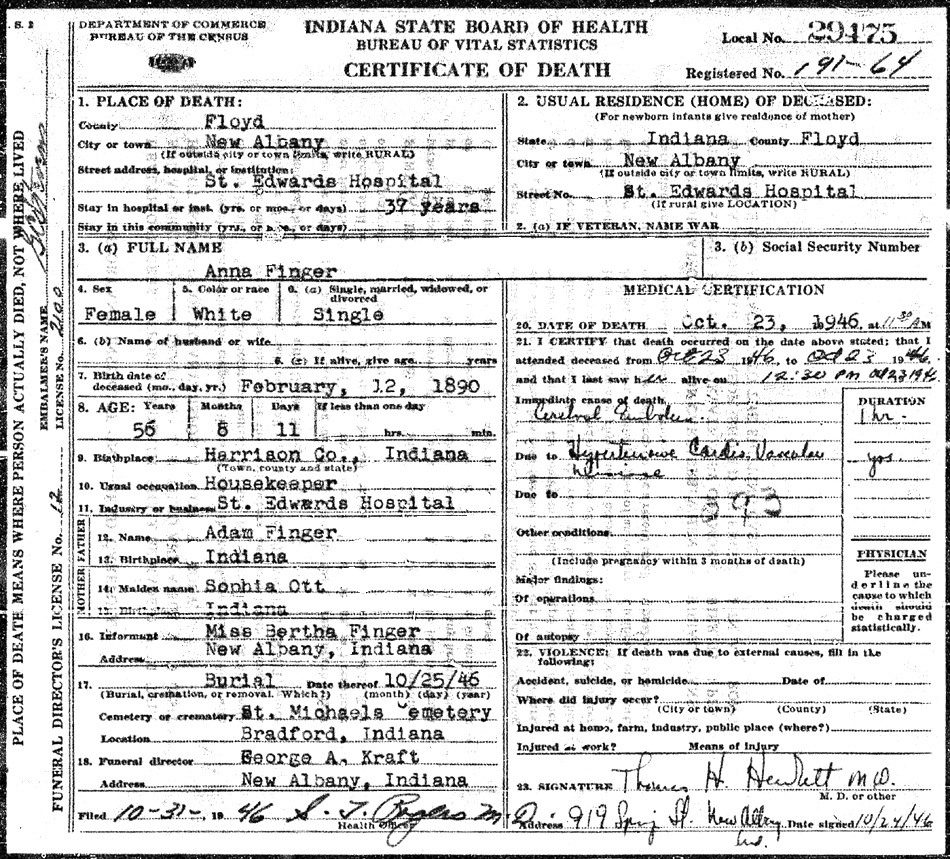 S. 2
DEPARTMENT OF COMMERCE
BUREAU OF THE CENSUS
INDIANA STATE BOARD OF HEALTH
BUREAU OF VITAL STATISTICS
CERTIFICATE OF DEATH
Local No. 29475
Registered No. 191-64
PLACE OF DEATH MEANS WHERE PERSON ACTUALLY DIED, NOT WHERE LIVED
EMBALMER'S NAME
LICENSE No. 2100
FUNERAL DIRECTOR'S LICENSE No. 12
1. PLACE OF DEATH:
County Floyd
City or town New Albany
(If outside city or town limits, write RURAL)
Street address, hospital, or institution:
St. Edwards Hospital
Stay in hospital or inst. (yrs. or mos., or days) 37 years
Stay in this community (yrs., or mos., or days)
2. USUAL RESIDENCE (HOME) OF DECEASED:
(For newborn infants give residence of mother)
State Indiana County Floyd
City or town New Albany
(If outside city or town limits, write RURAL)
Street No. St. Edwards Hospital
(If rural give LOCATION)
2. (a) IF VETERAN, NAME WAR
3. (a) FULL NAME
Anna Finger
3. (b) Social Security Number
4. Sex
Female
5. Color or race
White
6. (a) Single, married, widowed, or divorced
Single
6. (b) Name of husband or wife
6. (c) If alive, give age years
7. Birth date of
deceased (mo., day, yr.) February, 12, 1890
8. AGE: Years Months Days If less than one day
56 8 11 hrs. min.
9. Birthplace Harrison Co., Indiana
(Town, county and state)
10. Usual occupation Housekeeper
11. Industry or business St. Edwards Hospital
FATHER
12. Name Adam Finger
13. Birthplace Indiana
MOTHER
14. Maiden name Sophia Ott
15. Birthplace Indiana
16. Informant Miss Bertha Finger
Address New Albany, Indiana
17. Burial Date thereof 10/25/46
(Burial, cremation, or removal. Which?) (month) (day) (year)
Cemetery or crematory St. Michaels Cemetery
Location Bradford, Indiana
18. Funeral director George A. Kraft
Address New Albany, Indiana
Filed 10-31-, 1946 S. T. Rogers M.D.
Health Officer
MEDICAL CERTIFICATION
20. DATE OF DEATH Oct. 23, 1946, at 11:30 AM
21. I CERTIFY that death occurred on the date above stated; that I
attended deceased from Oct 23 1946, to Oct 23 1946.
and that I last saw her alive on 12:30 PM Oct 23 1946
Immediate cause of death
Cerebral Embolus
DURATION
1 hr.
Due to Hypertensive Cardio Vascular
yrs
Due to
393
Other conditions
(Include pregnancy within 3 months of death)
Major findings:
Of operations
Of autopsy
PHYSICIAN
Please un-
derline the
cause to which
death should
be charged
statistically.
22. VIOLENCE: If death was due to external causes, fill in the
following:
Accident, suicide, or homicide Date of
Where did injury occur?
(City or town) (County) (State)
Injured at home, farm, industry, public place (where?)
Injured at work? Means of injury
23. SIGNATURE Thomas H. Hewlett M.D.
M. D. or other
Address 919 Spring St. New Albany Ind. Date signed 10/24/46